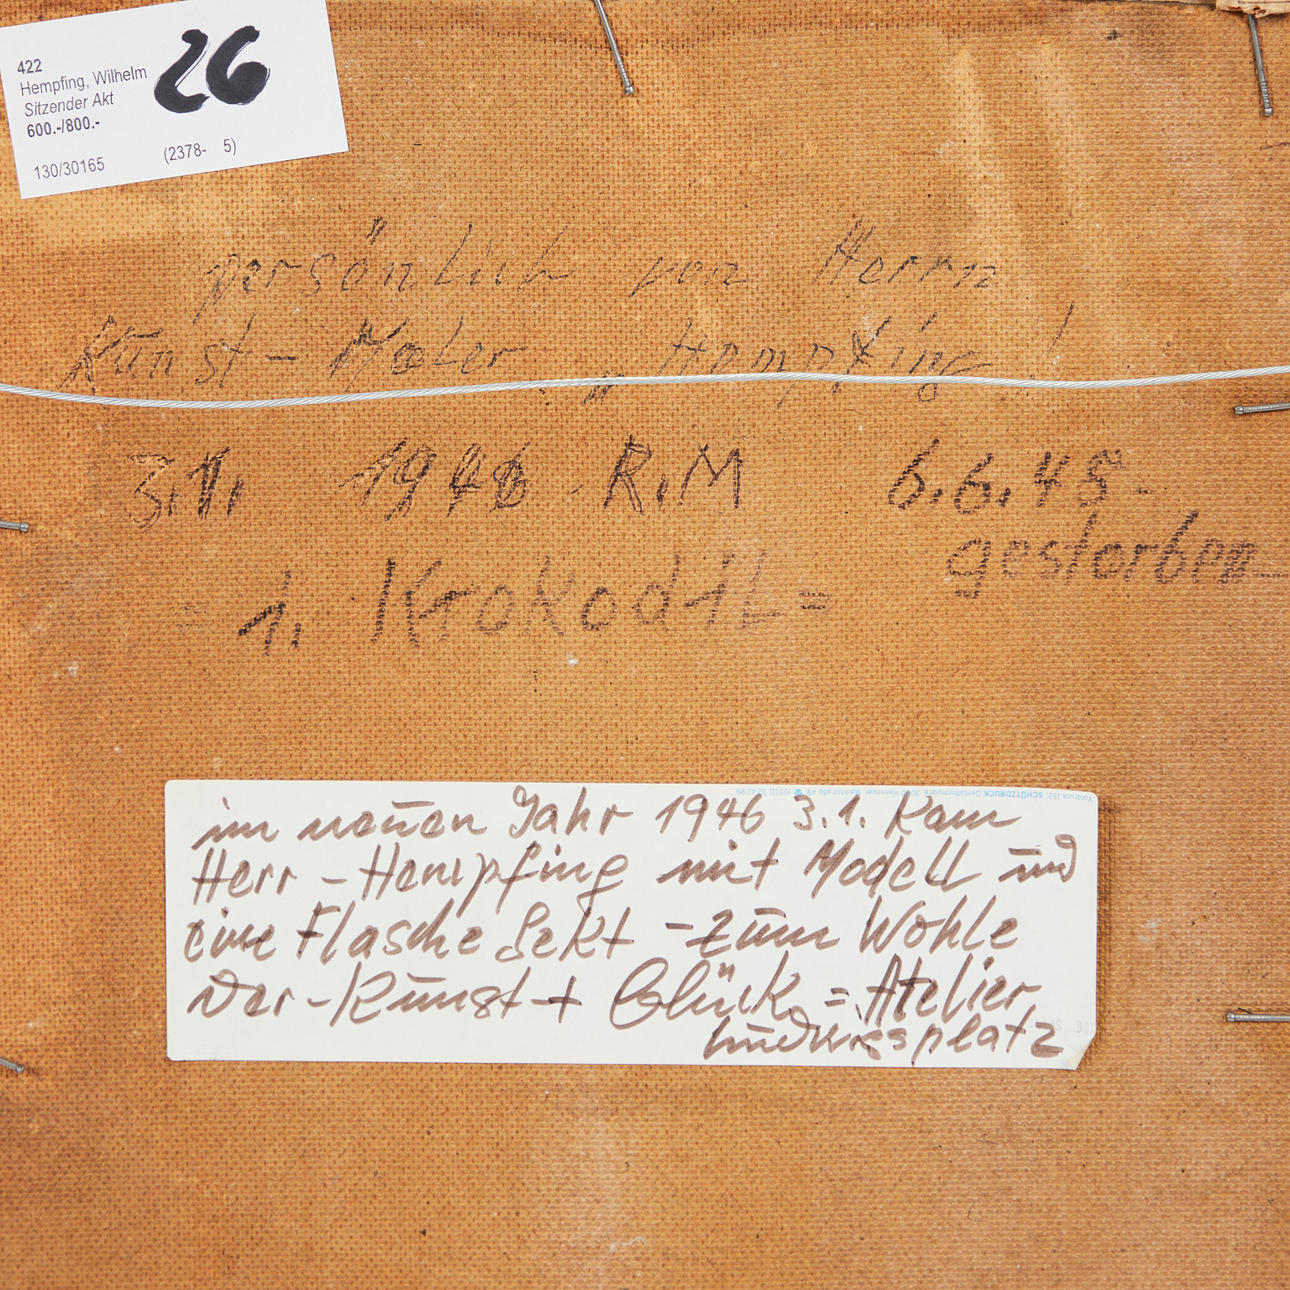 422
Hempfing, Wilhelm
Sitzender Akt
600.-/800.-
130/30165 (2378- 5)
26
persönlich von Herrn
Kunst-Maler „Hempfing!
3.1. 1946 R.M 6.6.48-
gestorben
= 1. Krokodil =
Vordruck 252, SCHÜTZDRUCK Dentalformulare, 3000 Hannover, Marktstraße 49 ☎ (0511) 32 42 99
im neuen Jahr 1946 3.1. kam
Herr - Hempfing mit Modell und
eine Flasche Sekt - zum Wohle
der - Kunst + Glück = Atelier
Ludwigsplatz